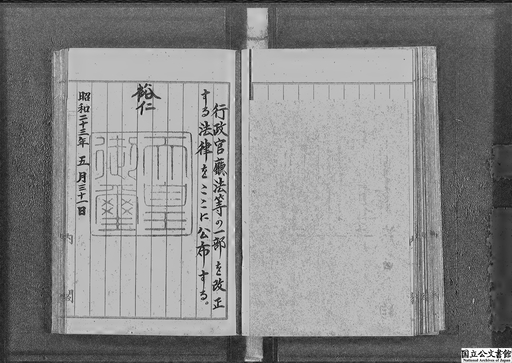 行政官廳法等の一部を改正
する法律をここに公布する。
裕仁
天皇
御璽
昭和二十三年五月三十一日
内閣
国立公文書館
National Archives of Japan